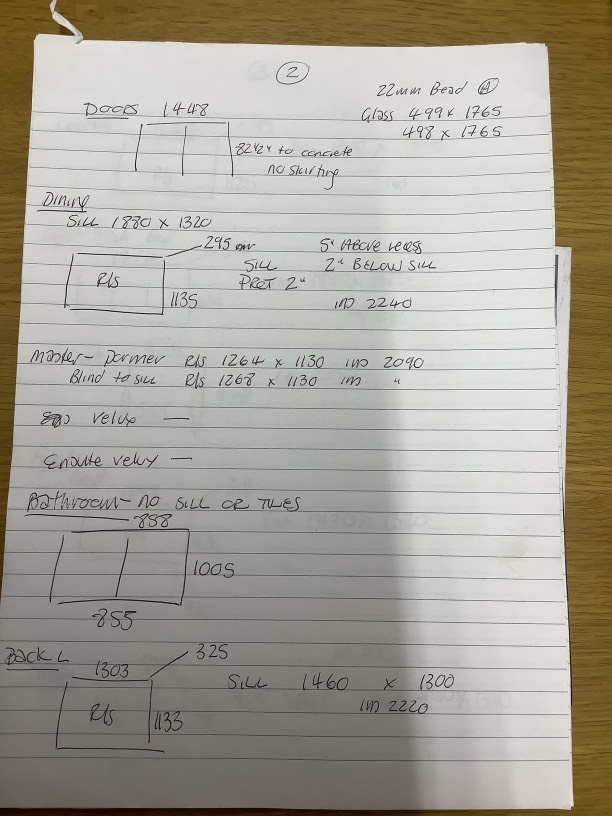 2
22mm Bead A
Doors 1448
Glass 499 x 1765
498 x 1765
82½" to concrete
no skirting
Dining
Sill 1880 x 1320
295 mm
5" Above recess
Sill 2" Below Sill
R/s
Prot 2"
1135
im 2240
Master - Dormer R/s 1264 x 1130 im 2090
Blind to sill R/s 1268 x 1130 im "
velux —
Ensuite velux —
Bathroom - no sill or tiles
858
1005
855
Back L
325
1303
Sill 1460 x 1300
R/s
1133
im 2220